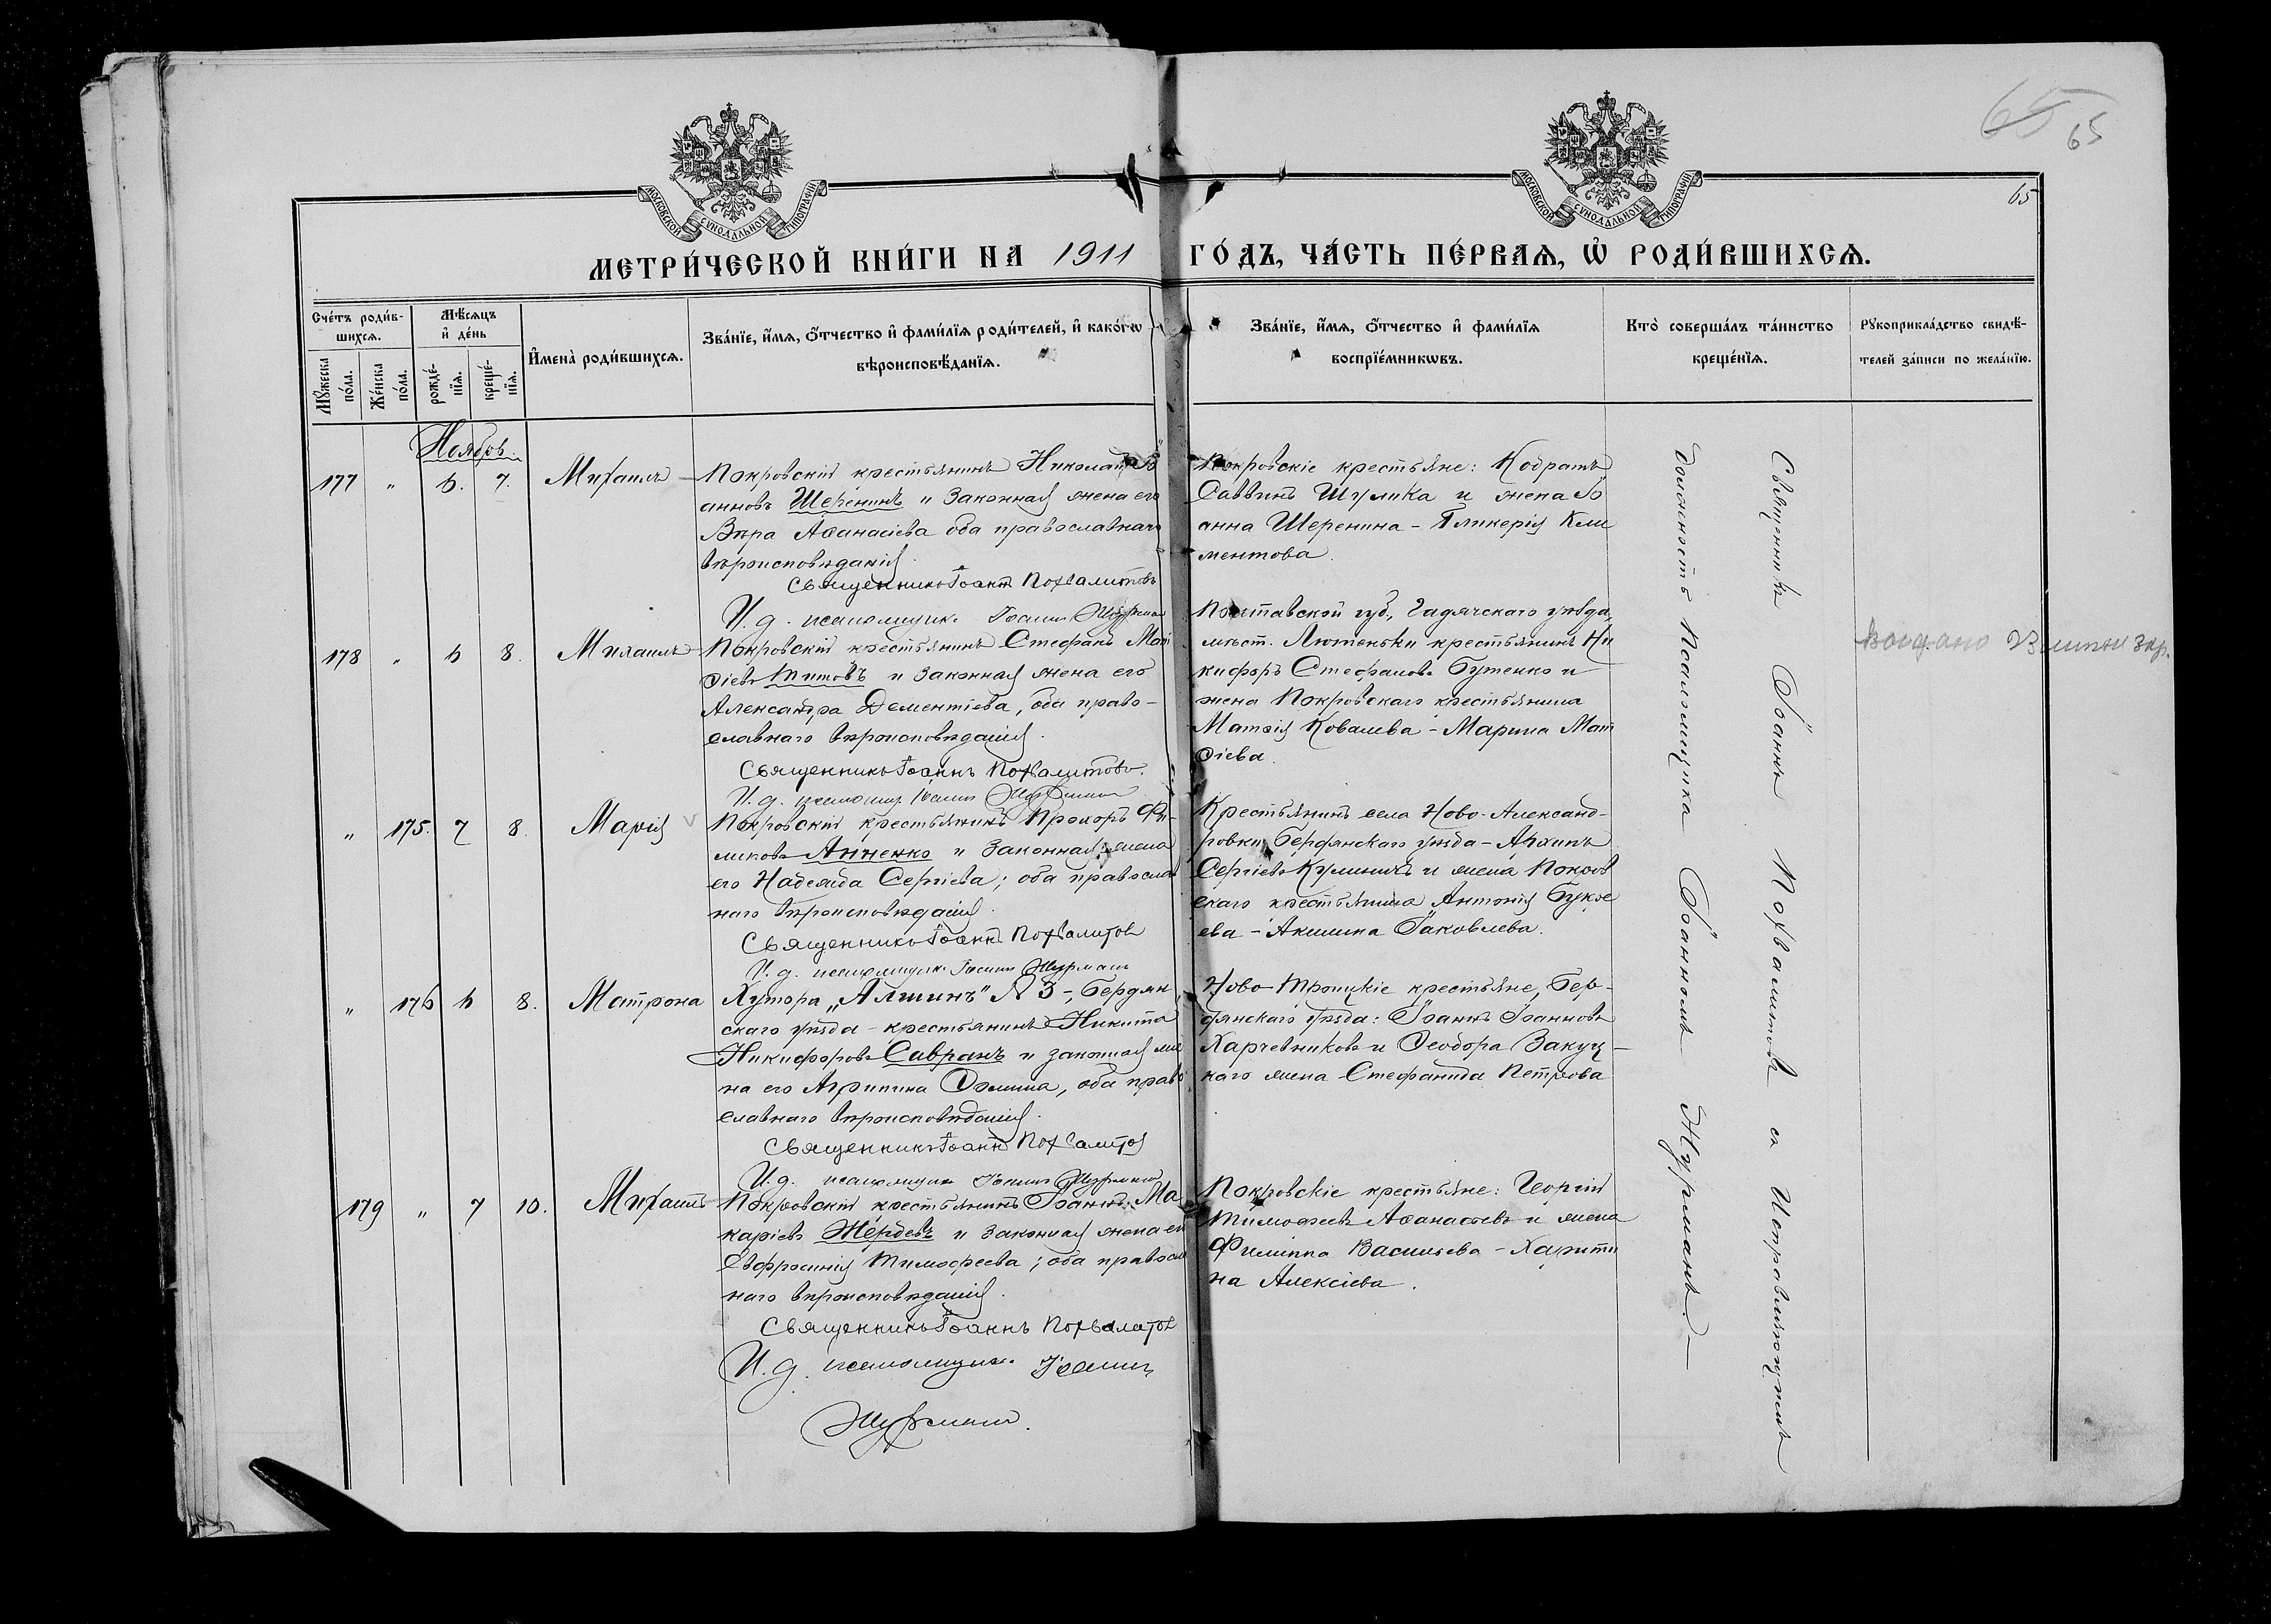 65
65
65
МОСКОВСКОЙ СѴНОДАЛЬНОЙ ТИПОГРАФІИ
МОСКОВСКОЙ СѴНОДАЛЬНОЙ ТИПОГРАФІИ
МЕТРИ́ЧЕСКОЙ КНИ́ГИ НА 1911 ГО́ДЪ, ЧА́СТЬ ПЕ́РВАѦ, Ѡ҆ РОДИ́ВШИХСѦ.
Сче́тъ роди́в-
шихсѧ.
Мꙋ́жеска по́ла.
Же́нска по́ла.
Мѣ́сѧцъ
и҆ де́нь
рожде́-нїѧ.
креще́-нїѧ.
И҆мена̀ роди́вшихсѧ.
Зва́нїе, и҆́мѧ, ѻ҆́тчество и҆ фами́лїѧ роди́телей, и҆ како́гѡ
вѣроисповѣ́данїѧ.
Зва́нїе, и҆́мѧ, ѻ҆́тчество и҆ фами́лїѧ
воспрїе́мникѡвъ.
Кто̀ соверша́лъ та́инство
креще́нїѧ.
Рꙋкоприкла́дство свидѣ́-
телей за́писи по жела́нїю.
Ноябрь.
177 " 6. 7. Михаилъ
Покровскій крестьянинъ Николай Іо
анновъ Шеренинъ и законная жена его
Вѣра Аѳанасіева оба православнаго
вѣроисповѣданія.
Священникъ Іоаннъ Похвалитовъ
И. д. псаломщик. Іоаннъ Журман
Покровскіе крестьяне: Кодратъ
Саввинъ Шулика и жена Іо
анна Шеренина - Гликерія Кли
ментова.
178 " 6 8. Михаилъ
Покровскій крестьянинъ Стефанъ Мои
сіевъ Титовъ и законная жена его
Александра Дементіева, оба право-
славнаго вѣроисповѣданія.
Священникъ Іоаннъ Похвалитовъ.
И. д. псаломщ. Іоаннъ Журман
Полтавской губ., Гадячскаго уѣзда,
мѣст. Лютеньки крестьянинъ Ни
кифоръ Стефановъ Бутенко и
жена Покровскаго крестьянина
Матѳія Ковалева - Марина Мат
ѳіева.
" 175. 7 8. Марія
Покровскій крестьянинъ Прохоръ Фи-
ликовъ Анненко и законная жена
его Надежда Сергіева; оба православ
наго вѣроисповѣданія.
Священникъ Іоаннъ Похвалитов
И. д. псаломщик Іоаннъ Журман
Крестьянинъ села Ново-Александ-
ровки, Бердянскаго уѣзда - Архипъ
Сергіевъ Кулиничъ и жена Покров
скаго крестьянина Антонія
ева - Акилина Іаковлева.
" 176 6 8. Матрона
Хутора „Алшинъ" № 3 -, Бердян
скаго уѣзда - крестьянинъ Никита
Никифоровъ Савранъ и законная же
на его Агрипина Ѳомина, оба право
славнаго вѣроисповѣданія.
Священникъ Іоаннъ Похвалитов
И. д. псаломщик Іоаннъ Журман
Ново-Троицкіе крестьяне, Бер-
дянскаго уѣзда: Іоаннъ Іоанновъ
Харчевниковъ и Ѳеодора Закуц-
каго жена Стефанида Петрова
179 " 7 10. Михаилъ
Покровскій крестьянинъ Іоаннъ Ма
каріевъ Жердевъ и законная жена его
Евфросинія Тимофеева; оба правосла
наго вѣроисповѣданія.
Священникъ Іоаннъ Похвалитов
И. д. псаломщик. Іоаннъ
Журман.
Покровскіе крестьяне: Георгій
Тимофеевъ Аѳанасьевъ и жена
Филиппа Васильева - Харити
на Алексіева.
Священникъ Іоаннъ Похвалитовъ съ Исправляющимъ
должность Псаломщика Іоанномъ Журманъ.-
выдано